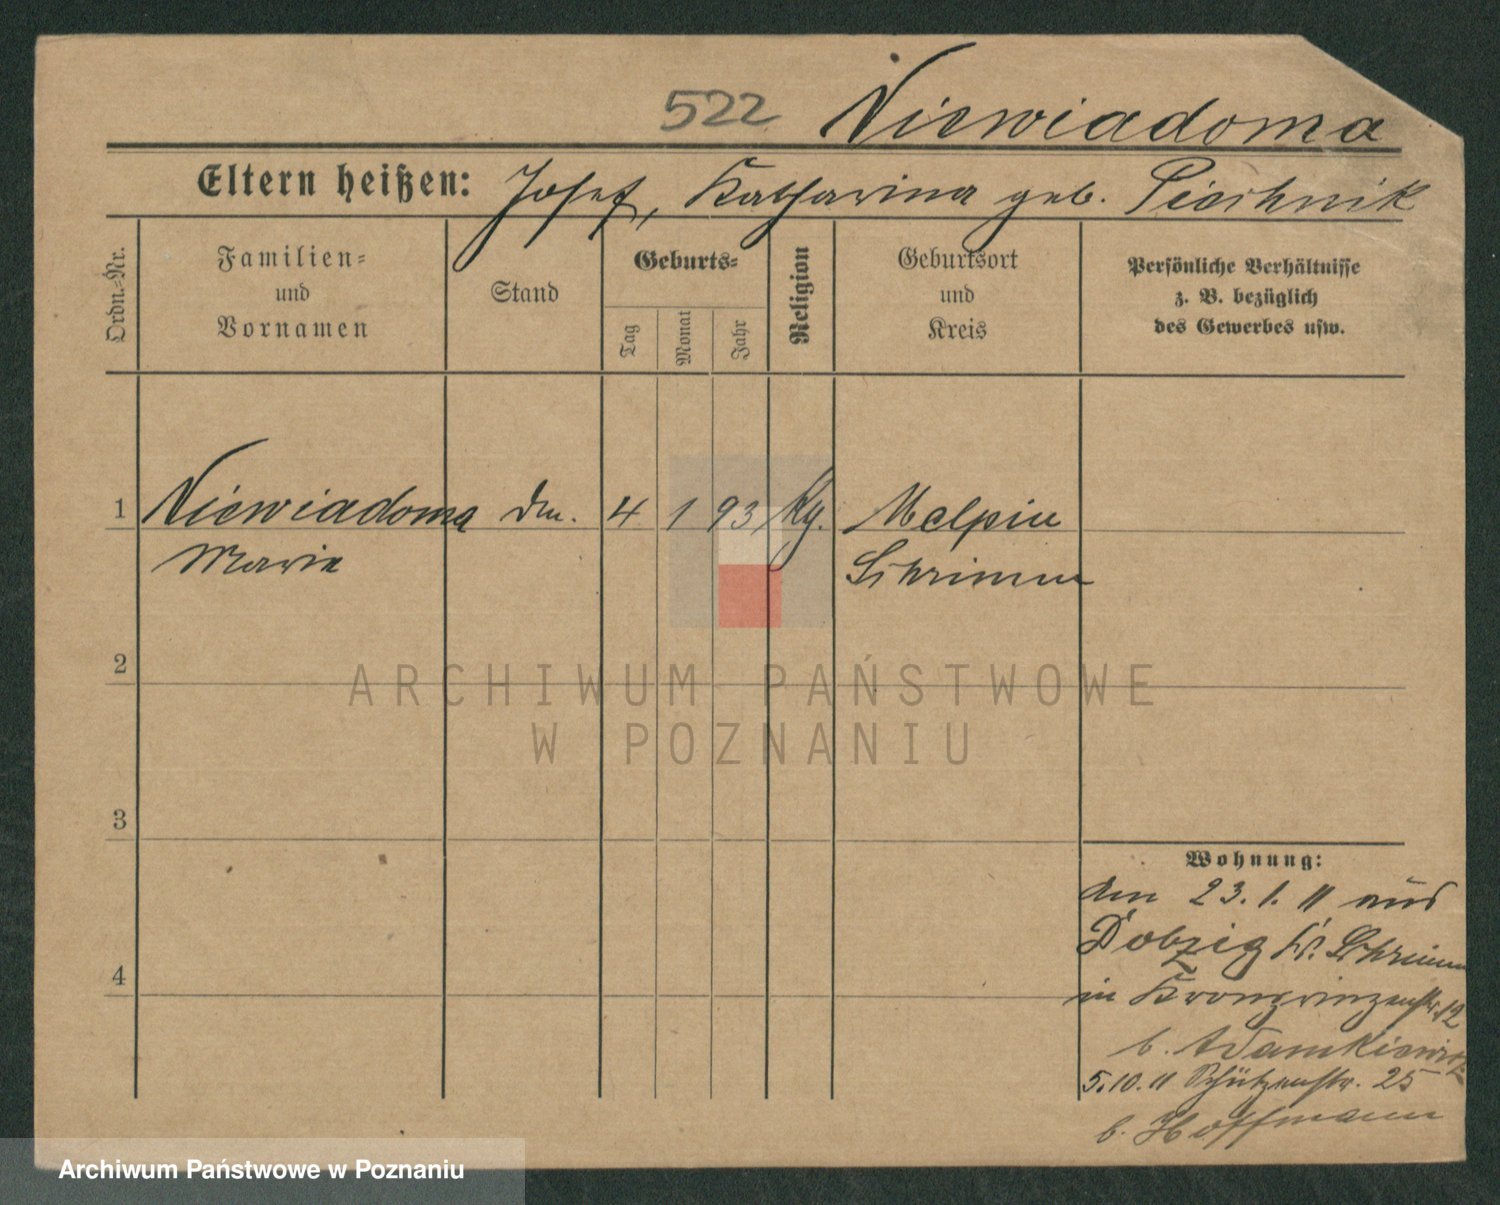 522 Niewiadoma
Eltern heißen: Josef, Katharina geb. Piechnik
Ordn.-Nr.
Familien-
und
Vornamen
Stand
Geburts-
Tag
Monat
Jahr
Religion
Geburtsort
und
Kreis
Persönliche Verhältnisse
z. B. bezüglich
des Gewerbes usw.
1 Niewiadoma 4 1 93 Melpin
Marie Schrimm
2
ARCHIWUM PAŃSTWOWE
W POZNANIU
3
Wohnung:
am 23.1.11 aus
Dobzig Kr. Schrimm
4
in Kronprinzenstr. 12
b. Adamkiewicz
5.10.11 Schützenstr. 25
b. Hoffmann
Archiwum Państwowe w Poznaniu